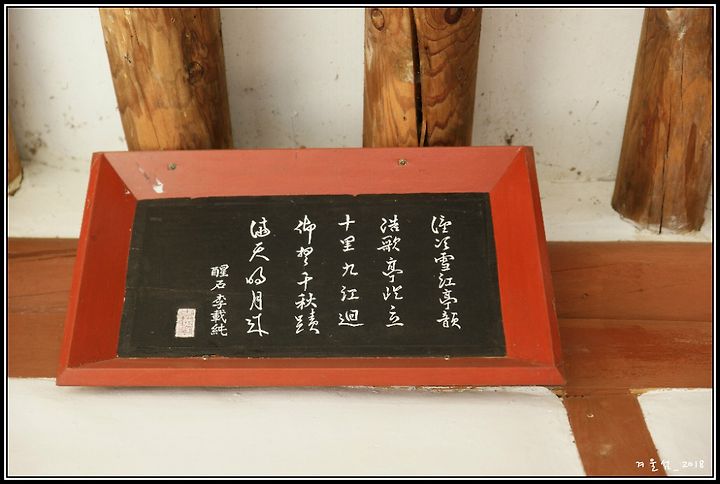 謹次雪江亭韻
浩歌亭屹立
十里九江迴
仰千秋蹟
滿天明月來
醒石 李載純
겨울섬_2018